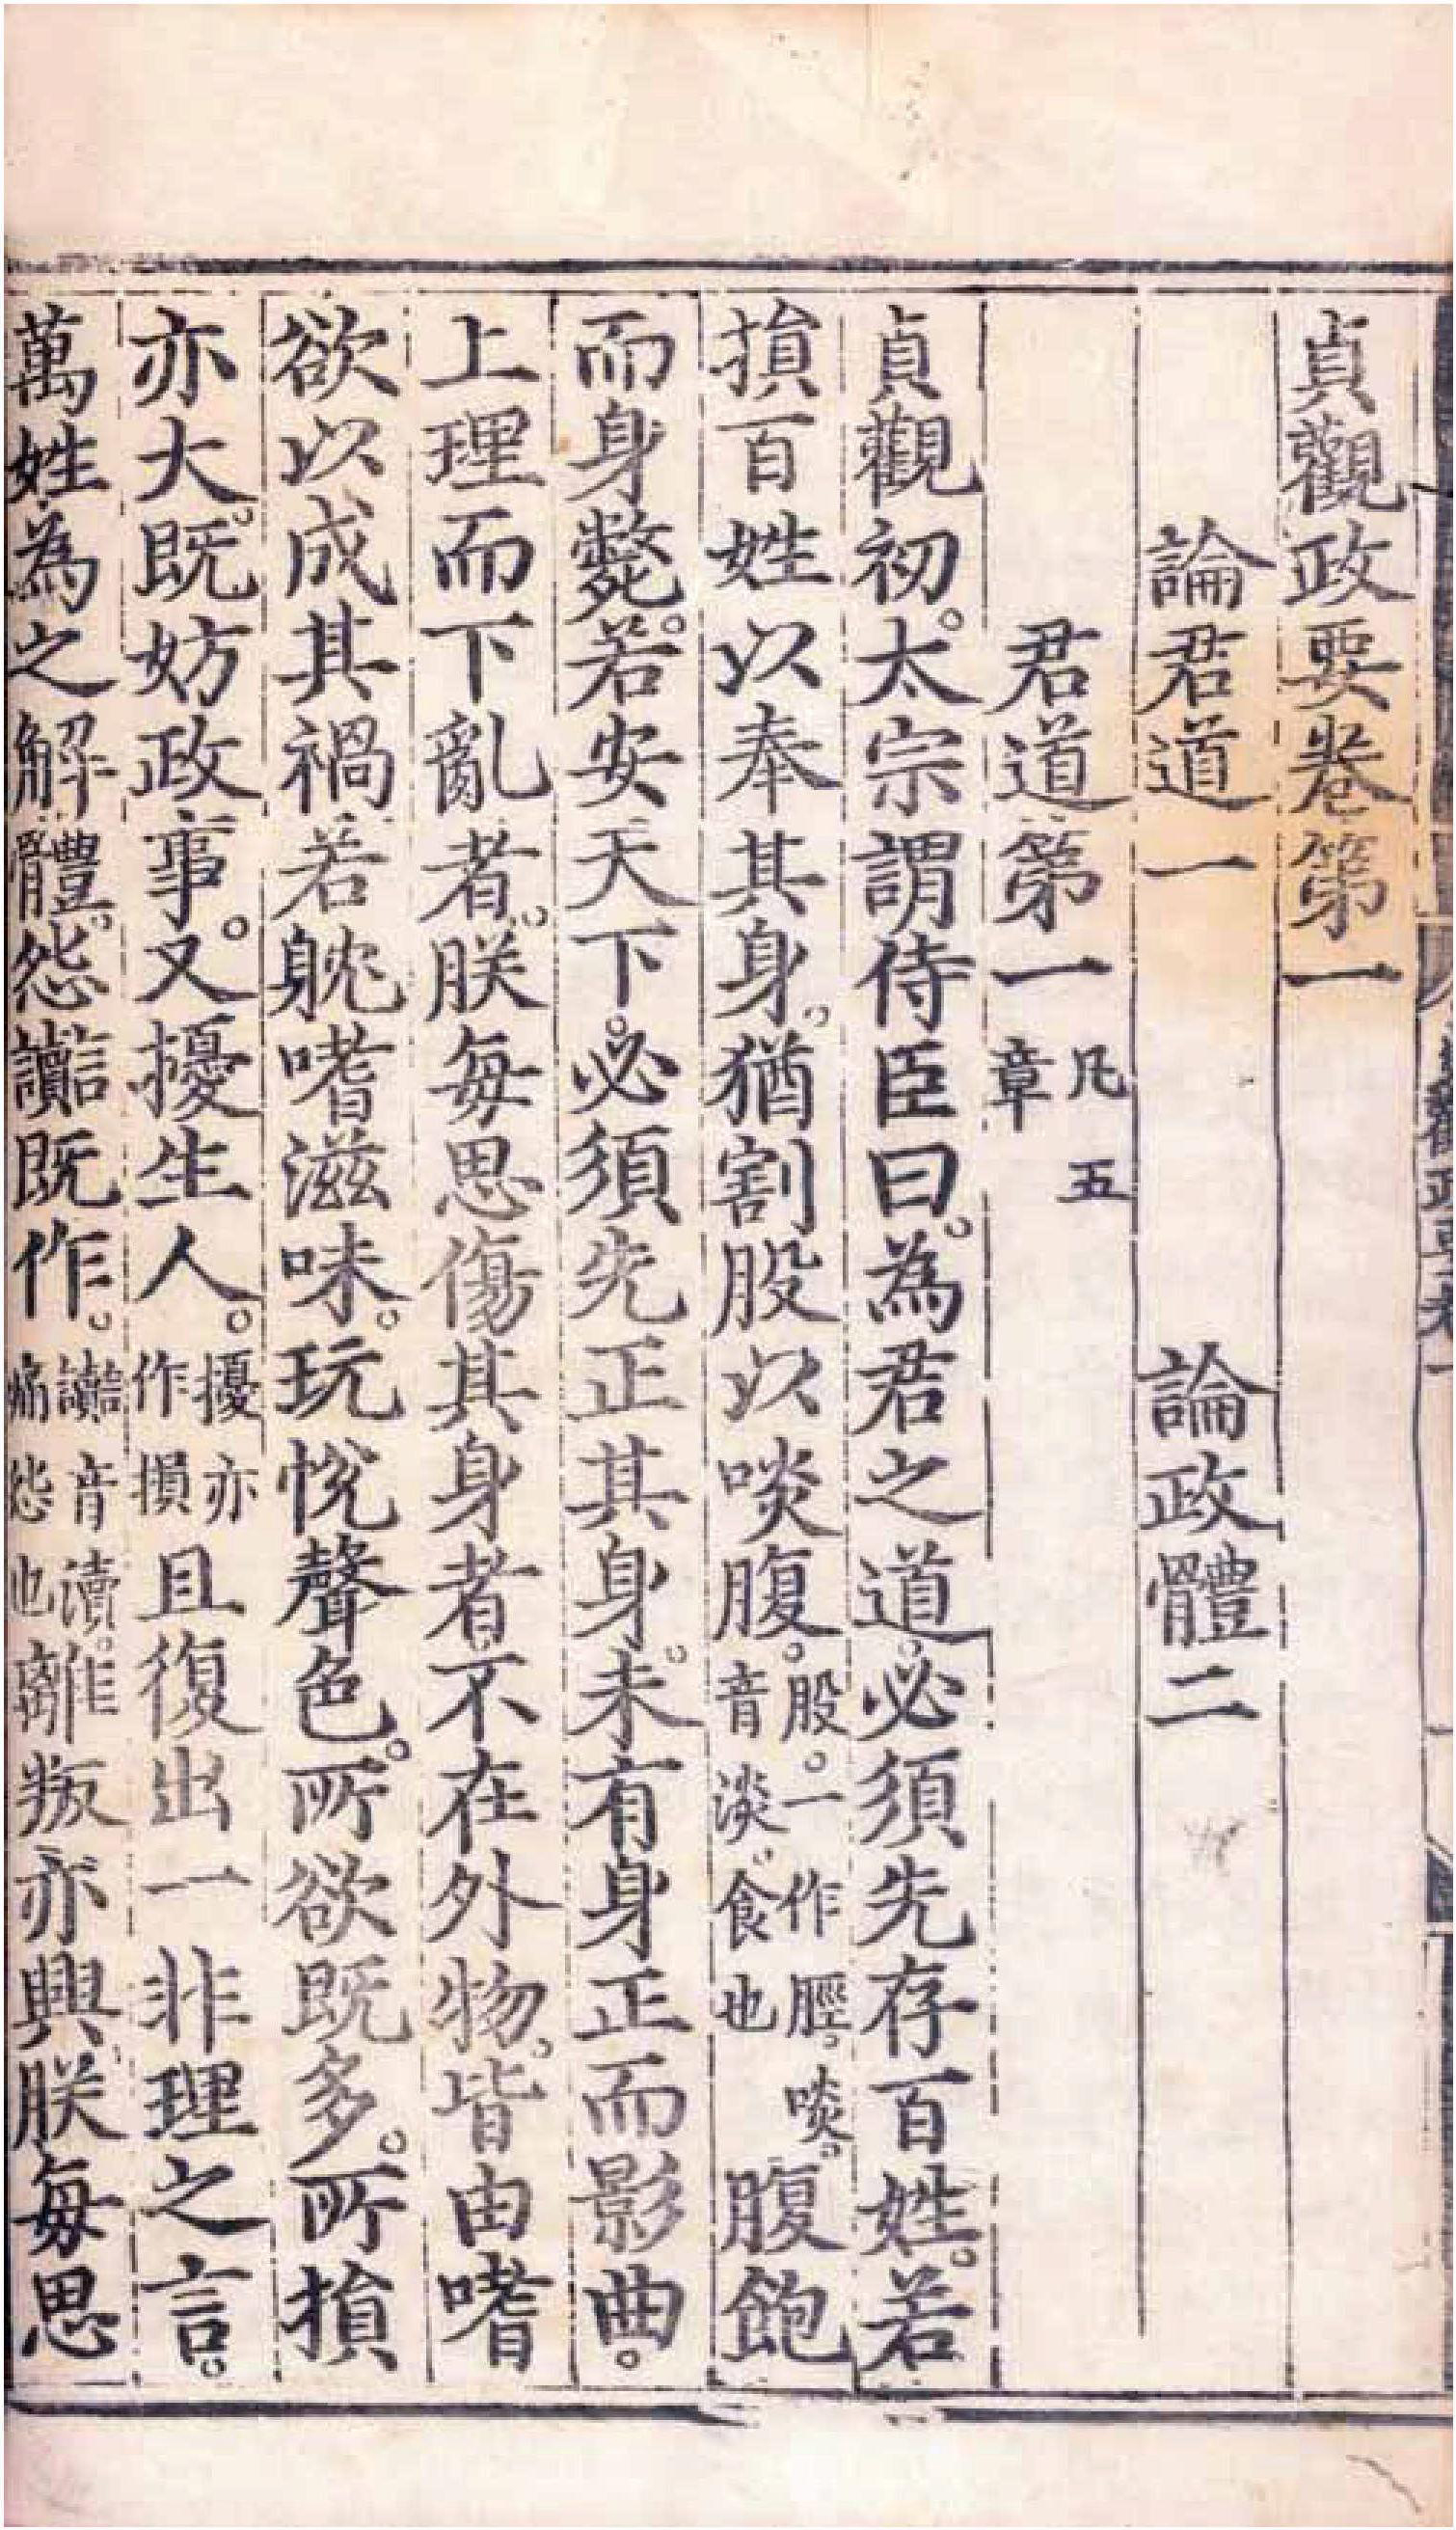 貞觀政要卷第一
論君道一　論政體二
君道第一 凡五章
貞觀初。太宗謂侍臣曰。為君之道。必須先存百姓。若
損百姓以奉其身。猶割股以啖腹。股。一作脛。啖。音淡。食也 腹飽
而身斃。若安天下。必須先正其身。未有身正而影曲。
上理而下亂者。朕每思傷其身者。不在外物。皆由嗜
欲以成其禍。若躭嗜滋味。玩悅聲色。所欲既多。所損
亦大。既妨政事。又擾生人。擾亦作損 且復出一非理之言。
萬姓為之解體。怨讟既作。讟音瀆。痛怨也 離叛亦興。朕每思